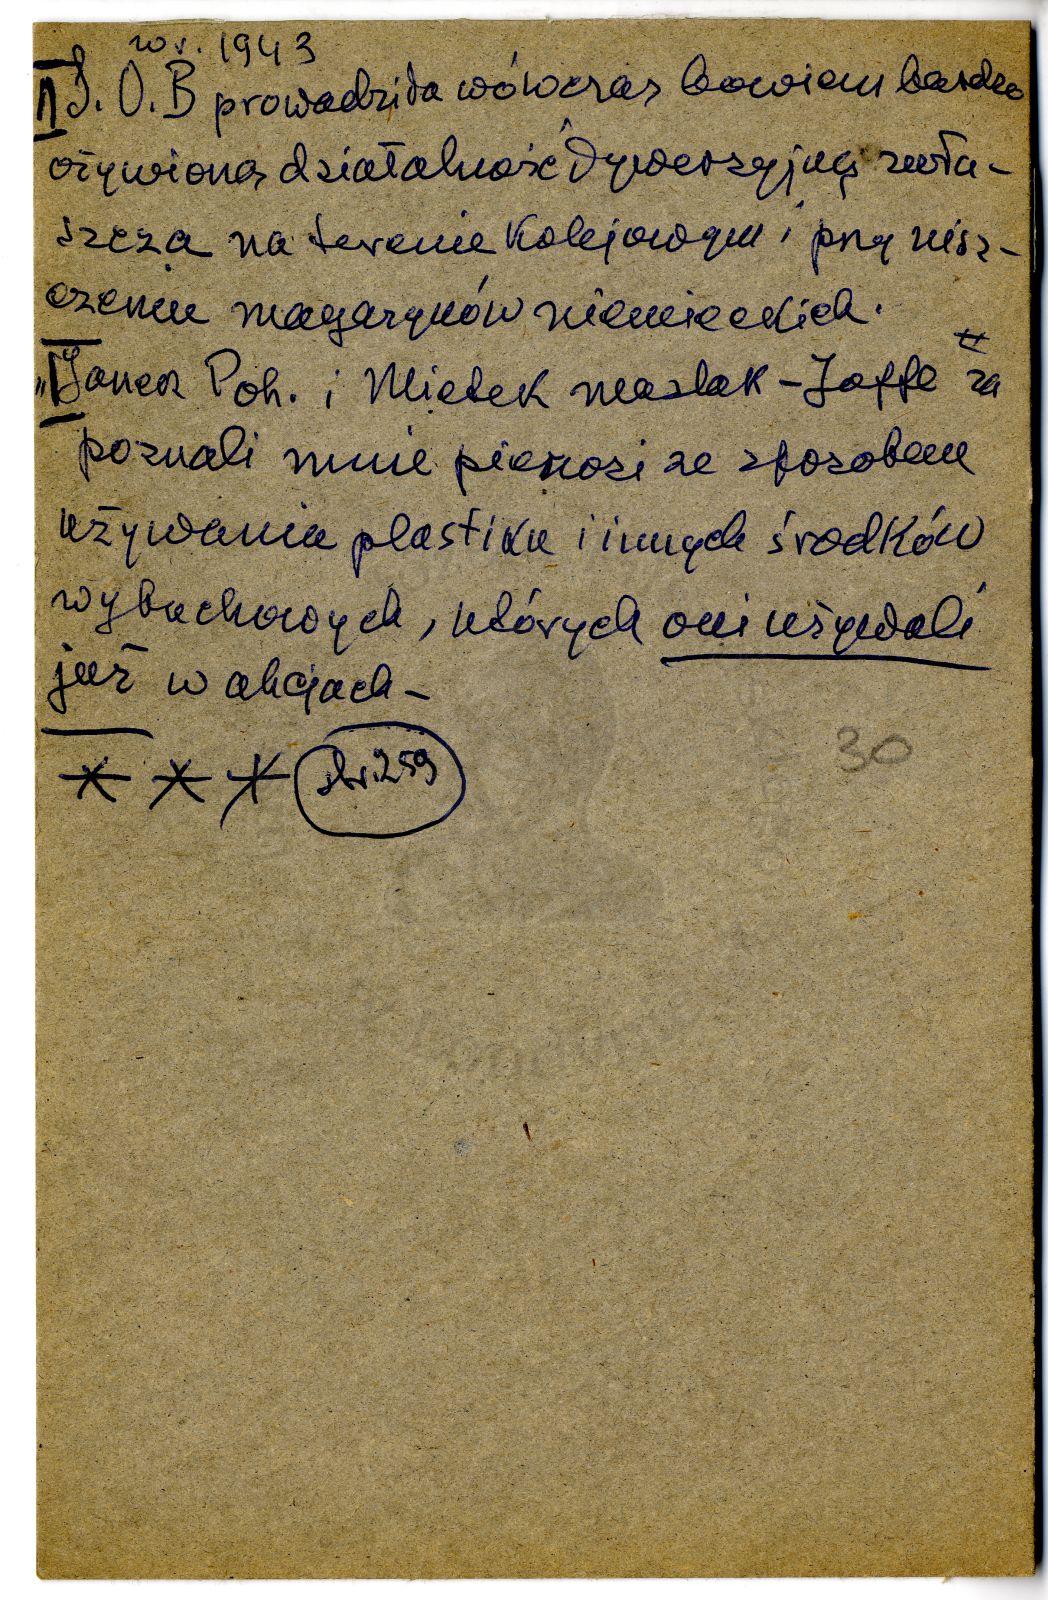 w r. 1943
Ż.O.B prowadziła wówczas bowiem bardzo
ożywioną działalność Dywersyjną zwła-
szcza na terenie Kolejowym i przy nisz-
czeniu magazynów niemieckich.
"Janek Poh. i Mietek maślak - Joffe za
poznali mnie pierwsi ze sposobem
używania plastiku i innych środków
wybuchowych, których oni używali
już w akcjach -
*** str. 259
30